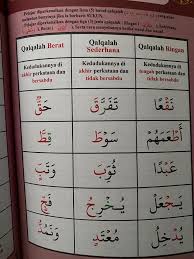 Pelajar diperkenalkan dengan lima (5) huruf qalqalah
bunyinya jika ia berbaris SUKUN.
Pelajar diperkenalkan dengan tiga (3) jenis qalqalah
Qalqalah Berat Qalqalah Sederhana Qalqalah Ringan
Kedudukannya di akhir perkataan dan bersabdu
Kedudukannya di akhir perkataan dan tidak bersabdu
Kedudukannya di tengah perkataan dan tidak bersabdu
نَقْعًا تَفَرَّقَ حَقٌّ
أَطْعَمَهُمْ سَوْطَ قِطٌّ
عَبْدًا ثُوِّبَ وَتَبَّ
يَجْعَلُ يَخْرُجُ فَجٍّ
يَدْخُلُ مُعْتَدٍ وَنَمُدُّ